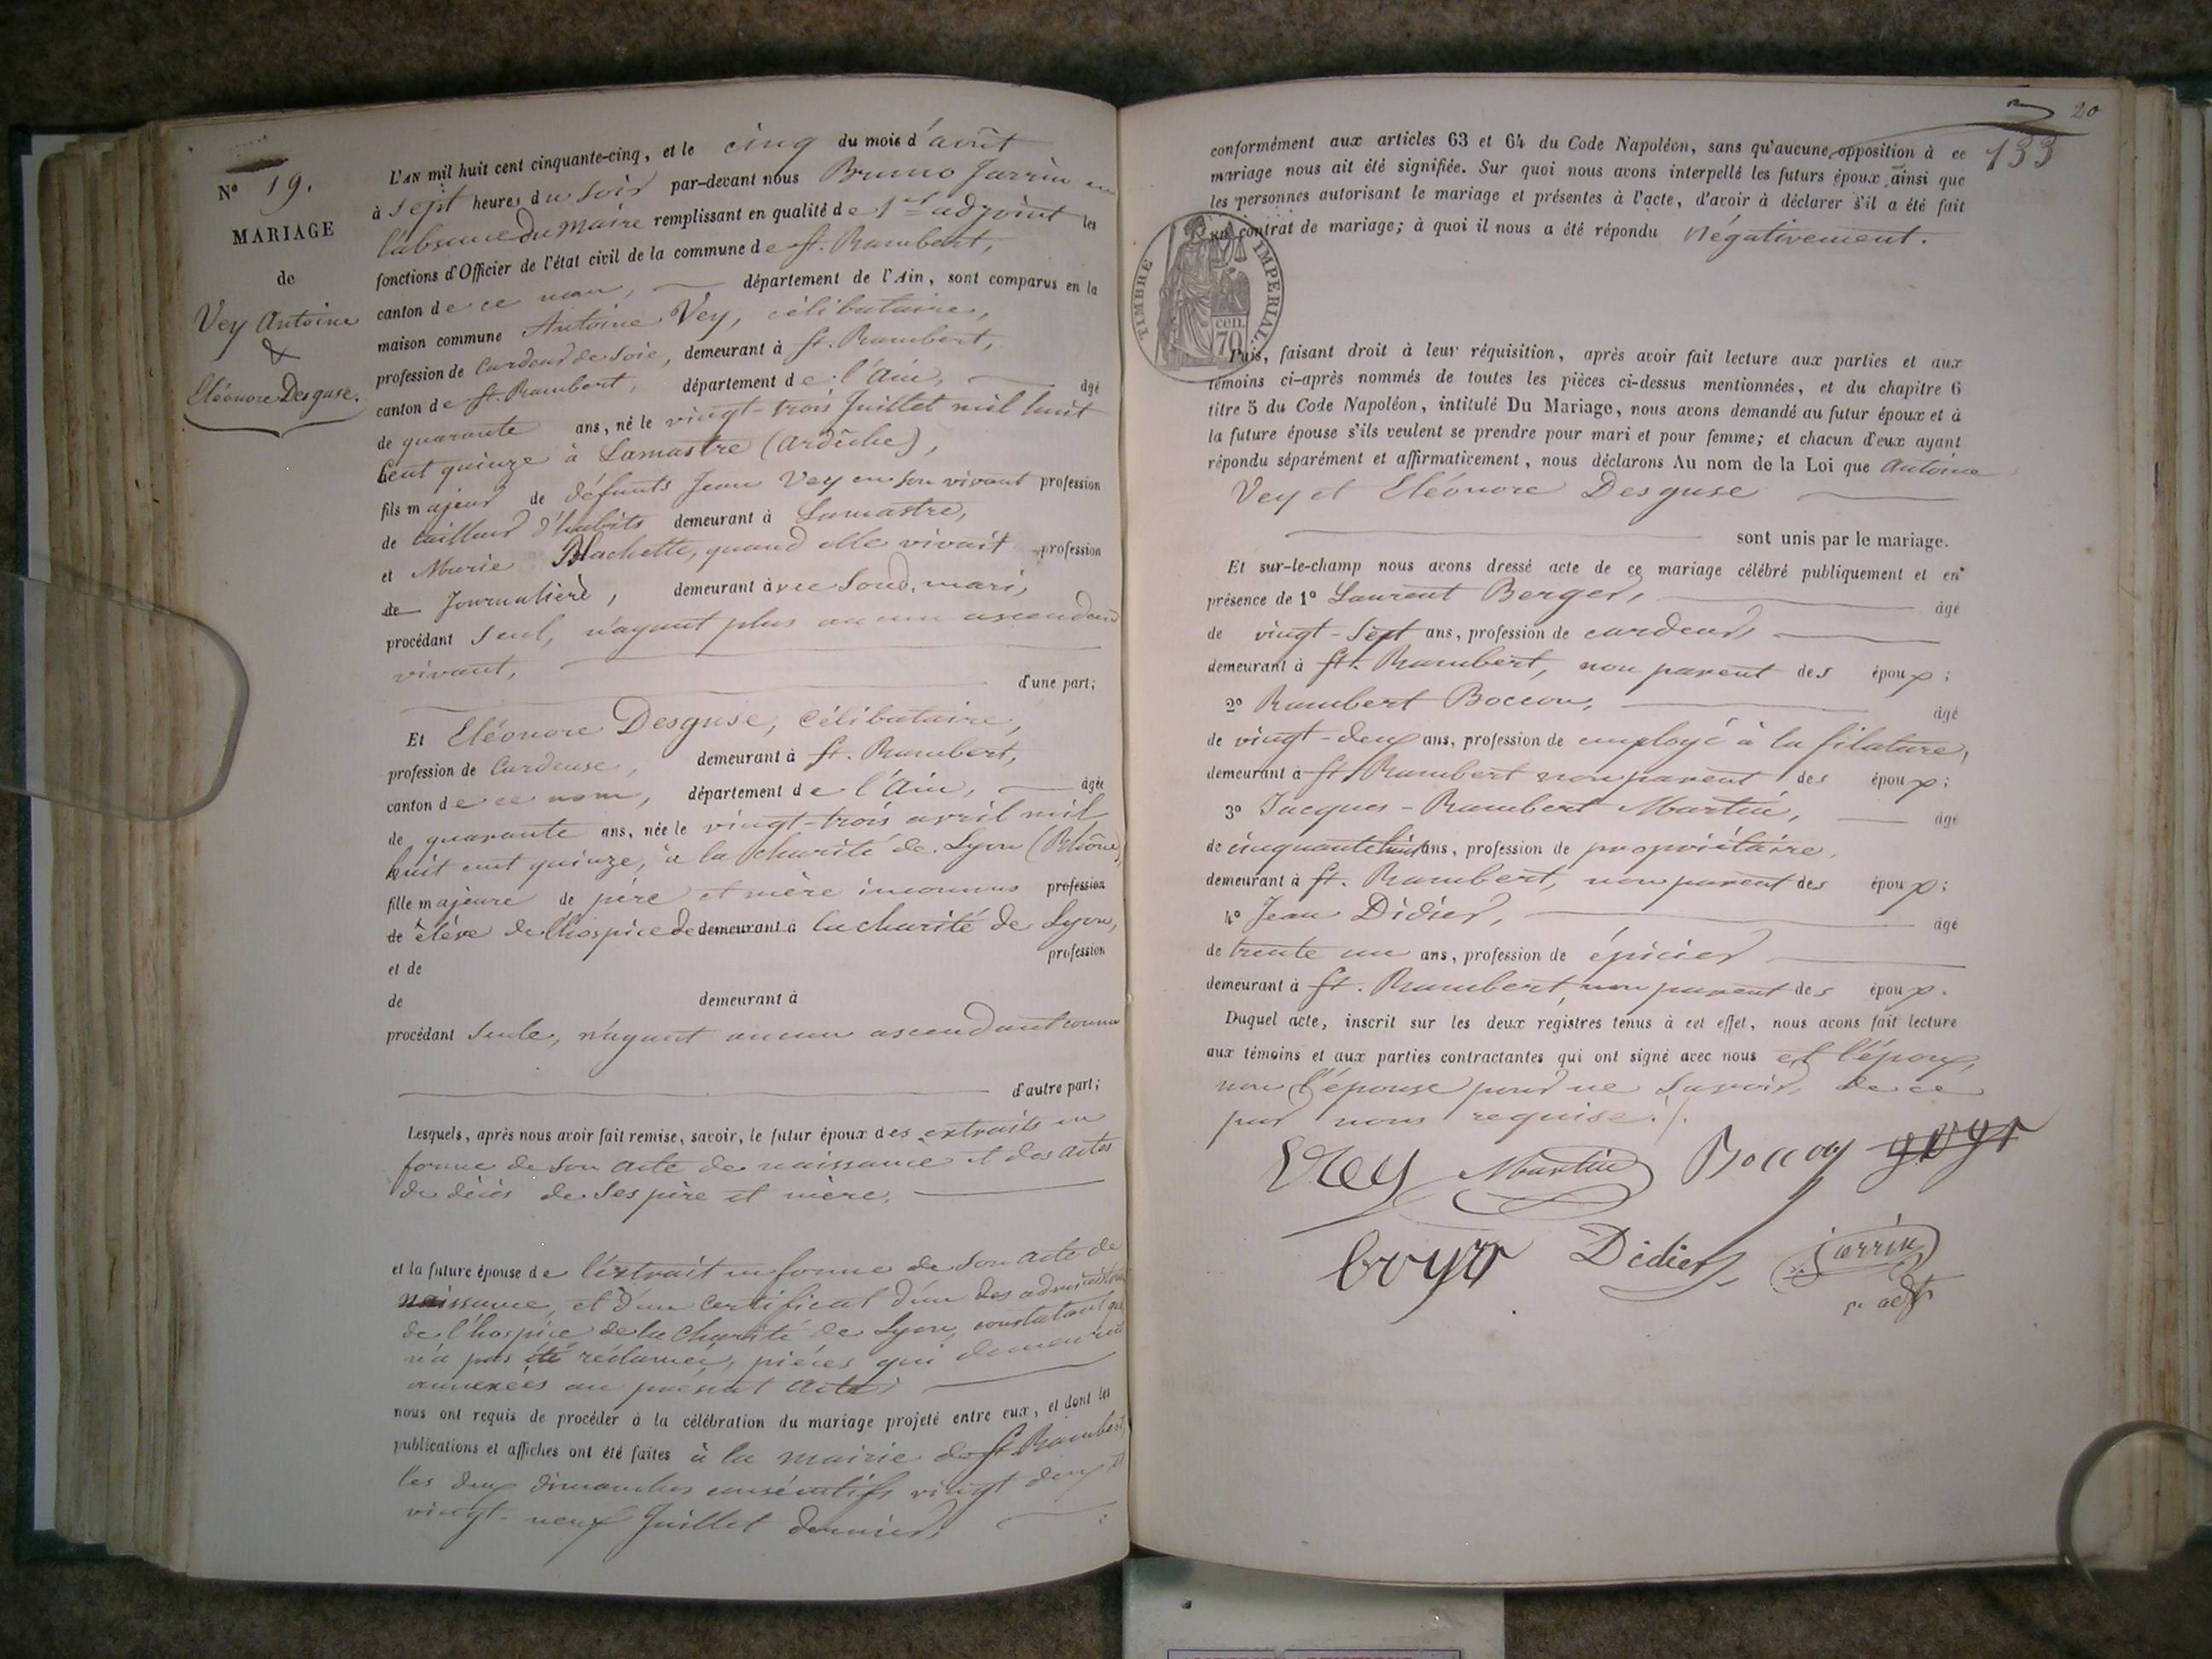 N° 19.
MARIAGE
de
Vey Antoine
&
Eléonore Desguse.
L'AN mil huit cent cinquante-cinq, et le cinq du mois d'août
à sept heures du soir par-devant nous Bruno Jarrin en
l'absence du Maire remplissant en qualité de 1er adjoint les
fonctions d'Officier de l'état civil de la commune de St. Rambert,
canton de ce nom, département de l'Ain, sont comparus en la
maison commune Antoine Vey, célibataire,
profession de Cardeur de soie, demeurant à St. Rambert,
canton de St. Rambert, département de l'Ain, âgé
de quarante ans, né le vingt-trois Juillet mil huit
Cent quinze à Lamastre (Ardèche),
fils majeur de défunts Jean Vey en son vivant profession
de tailleur d'habits demeurant à Lamastre,
et Marie Blachette, quand elle vivait profession
de Journalière, demeurant avec soud. mari,
procédant seul, n'ayant plus aucun ascendant
vivant,
d'une part;
Et Eléonore Desguse, Célibataire,
profession de Cardeuse, demeurant à St. Rambert,
canton de ce nom, département de l'Ain, âgée
de quarante ans, née le vingt-trois avril mil
huit cent quinze, à la charité de Lyon (Rhône)
fille majeure de père et mère inconnus profession
de élève de l'hospice de demeurant à la charité de Lyon,
et de profession
de demeurant à
procédant seule, n'ayant aucun ascendant connu
d'autre part;
Lesquels, après nous avoir fait remise, savoir, le futur époux des extraits en
forme de son acte de naissance et des actes
de décès de ses père et mère.
et la future épouse de l'extrait en forme de son acte de
naissance, et d'un Certificat d'un des
de l'hospice de la Charité de Lyon, constatant
n'a pas été réclamée, pièces qui
annexées au présent acte;
nous ont requis de procéder à la célébration du mariage projeté entre eux, et dont les
publications et affiches ont été faites à la mairie de St. Rambert
les deux dimanches consécutifs vingt deux et
vingt-neuf Juillet dernier, ;
20
133
conformément aux articles 63 et 64 du Code Napoléon, sans qu'aucune opposition à ce
mariage nous ait été signifiée. Sur quoi nous avons interpellé les futurs époux ainsi que
les personnes autorisant le mariage et présentes à l'acte, d'avoir à déclarer s'il a été fait
un contrat de mariage; à quoi il nous a été répondu Négativement.
TIMBRE IMPERIAL
70 cen.
Puis, faisant droit à leur réquisition, après avoir fait lecture aux parties et aux
témoins ci-après nommés de toutes les pièces ci-dessus mentionnées, et du chapitre 6
titre 5 du Code Napoléon, intitulé Du Mariage, nous avons demandé au futur époux et à
la future épouse s'ils veulent se prendre pour mari et pour femme; et chacun d'eux ayant
répondu séparément et affirmativement, nous déclarons Au nom de la Loi que Antoine
Vey et Eléonore Desguse
sont unis par le mariage.
Et sur-le-champ nous avons dressé acte de ce mariage célébré publiquement et en
présence de 1° Laurent Berger, âgé
de vingt-sept ans, profession de cardeur
demeurant à St. Rambert, non parent des époux;
2° Rambert Boccon, âgé
de vingt-deux ans, profession de employé à la filature,
demeurant à St. Rambert non parent des époux;
3° Jacques-Rambert Martin, âgé
de cinquante huit ans, profession de propriétaire,
demeurant à St. Rambert, non parent des époux;
4° Jean Didier, âgé
de trente un ans, profession de épicier
demeurant à St. Rambert, non parent des époux.
Duquel acte, inscrit sur les deux registres tenus à cet effet, nous avons fait lecture
aux témoins et aux parties contractantes qui ont signé avec nous et l'époux,
non l'épouse pour ne savoir, de ce
par nous requise./.
Vey Martin Boccon
Didier Jarrin